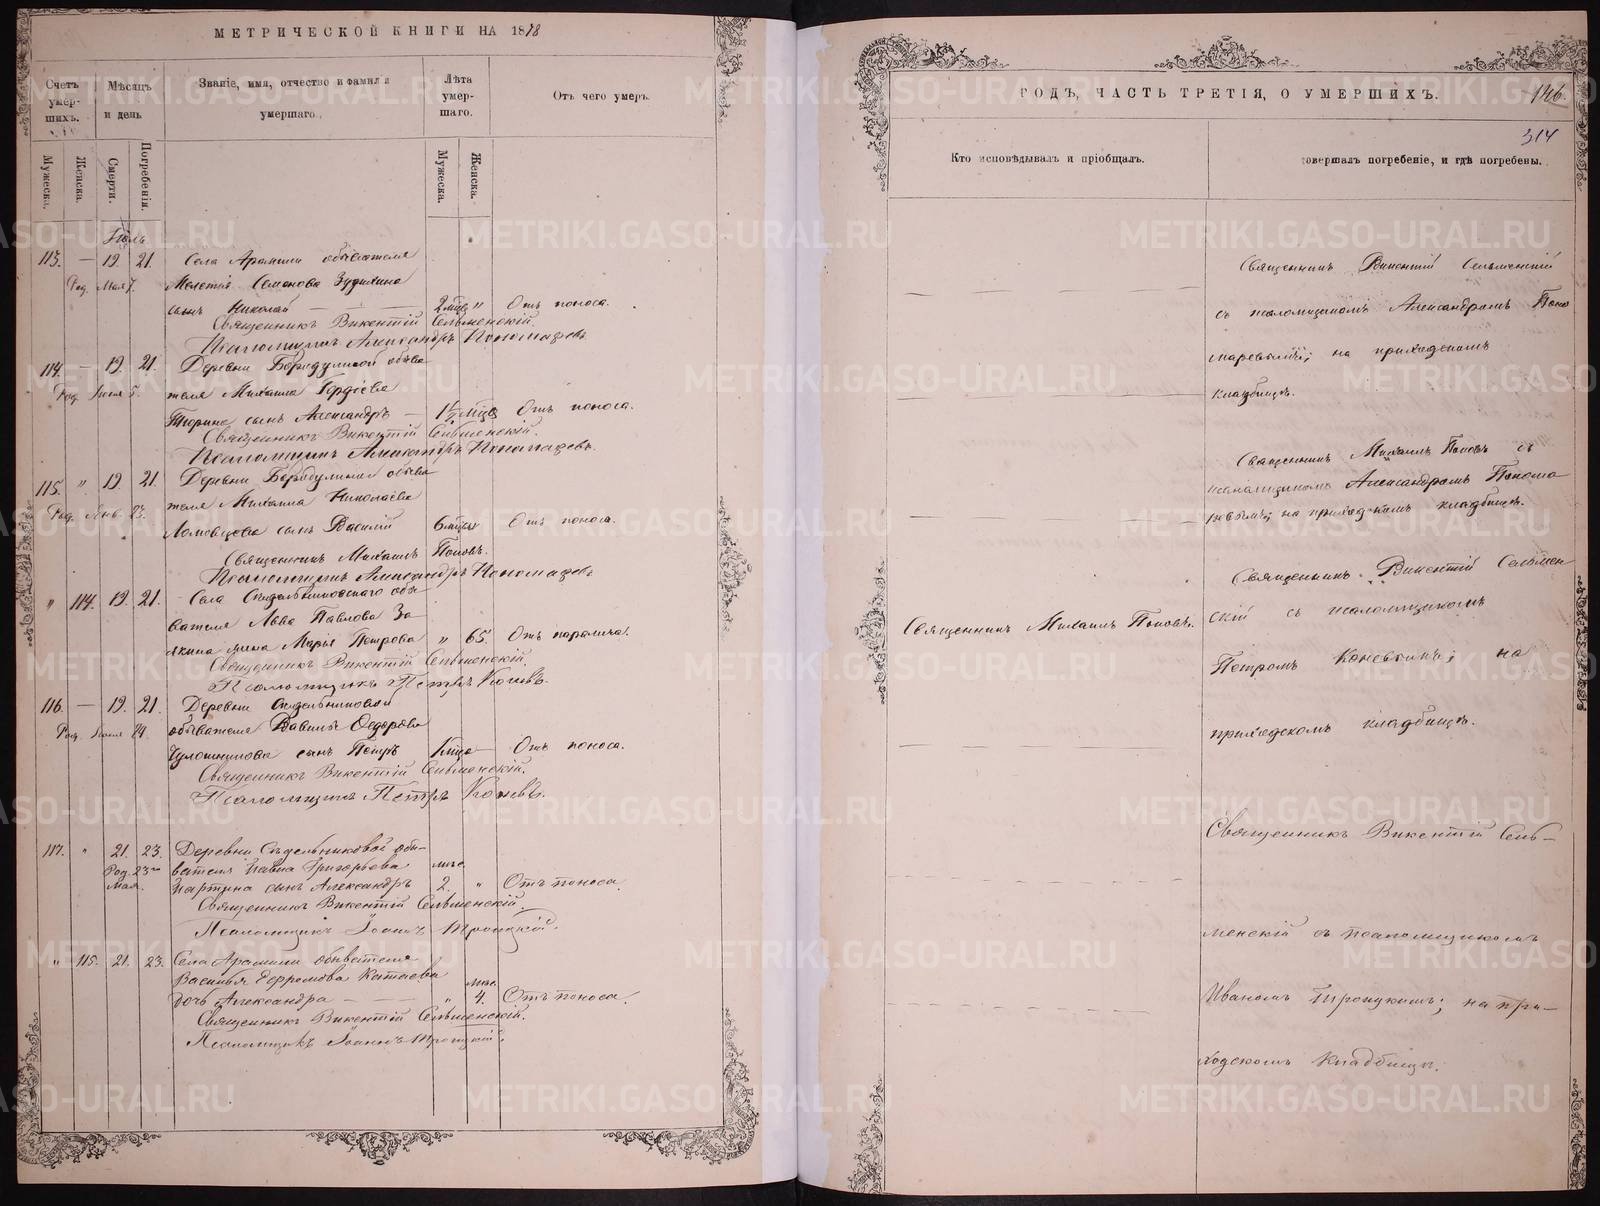 МЕТРИЧЕСКОЙ КНИГИ НА 1878
Счетъ умер-шихъ.
Мѣсяцъ и день
Званіе, имя, отчество и фамилія умершаго.
Лѣта умер-шаго.
Отъ чего умеръ.
Мужеска.
Женска.
Смерти.
Погребенія.
Мужеска.
Женска.
Іюль
113. — 19. 21. Села Арамили обывателя
Род. Мая 7. Мелетія Семенова
сынъ Николай — 2 мца " Отъ поноса.
Священникъ Викентій Сельменскій.
Псаломщикъ Александръ Пономаревъ
114. — 19. 21. Деревни Бородулиной обыва
Род. Іюня 5. теля Михаила Гордѣева
сынъ Александръ — 1½ мца Отъ поноса.
Священникъ Викентій Сельменскій.
Псаломщикъ Александръ Пономаревъ.
115. " 19. 21. Деревни Бородулиной обыва
Род. Янв. 23. теля Михаила Николаева
сынъ Василій 6 мцы Отъ поноса.
Священникъ Михаилъ Поповъ.
Псаломщикъ Александръ Пономаревъ
" 114. 19. 21. Села обы-
вателя Льва Павлова За-
якина жена Марья Петрова " 65. Отъ паралича.
Священникъ Викентій Сельменскій.
Псаломщикъ Петръ Коневъ.
116. — 19. 21. Деревни Сидѣльниковой
Род. Іюня 24. обывателя Вавилы Ѳедорова
сынъ Петръ 1 мца — Отъ поноса.
Священникъ Викентій Сельменскій.
Псаломщикъ Петръ Коневъ.
117. " 21. 23. Деревни Сѣдельниковой обы-
Род. 23го вателя Павла Григорьева мѣс.
Мая. Партина сынъ Александръ 2. " Отъ поноса.
Священникъ Викентій Сельменскій.
Псаломщикъ Іоаннъ Троицкій.
" 115. 21. 23. Села Арамили обывателя
Василья Ефремова Катаева мѣс.
дочь Александра — — " 4. Отъ поноса.
Священникъ Викентій Сельменскій.
Псаломщикъ Іоаннъ Троицкій.
ГОДЪ, ЧАСТЬ ТРЕТІЯ, О УМЕРШИХЪ.
146.
314
Кто исповѣдывалъ и пріобщалъ.
совершалъ погребеніе, и гдѣ погребены.
Священникъ Викентій Сельменскій
съ псаломщикомъ Александромъ Поно
маревымъ; на приходскомъ
кладбищѣ.
Священникъ Михаилъ Поповъ съ
псаломщикомъ Александромъ Понома
ревымъ; на приходскомъ кладбищѣ.
Священникъ Михаилъ Поповъ.
Священникъ Викентій Сельмен
скій съ псаломщикомъ
Петромъ Коневымъ; на
приходскомъ кладбищѣ.
Священникъ Викентій Сель-
менскій съ псаломщикомъ
Иваномъ Троицкимъ; на при-
ходскомъ кладбищѣ.
METRIKI.GASO-URAL.RU